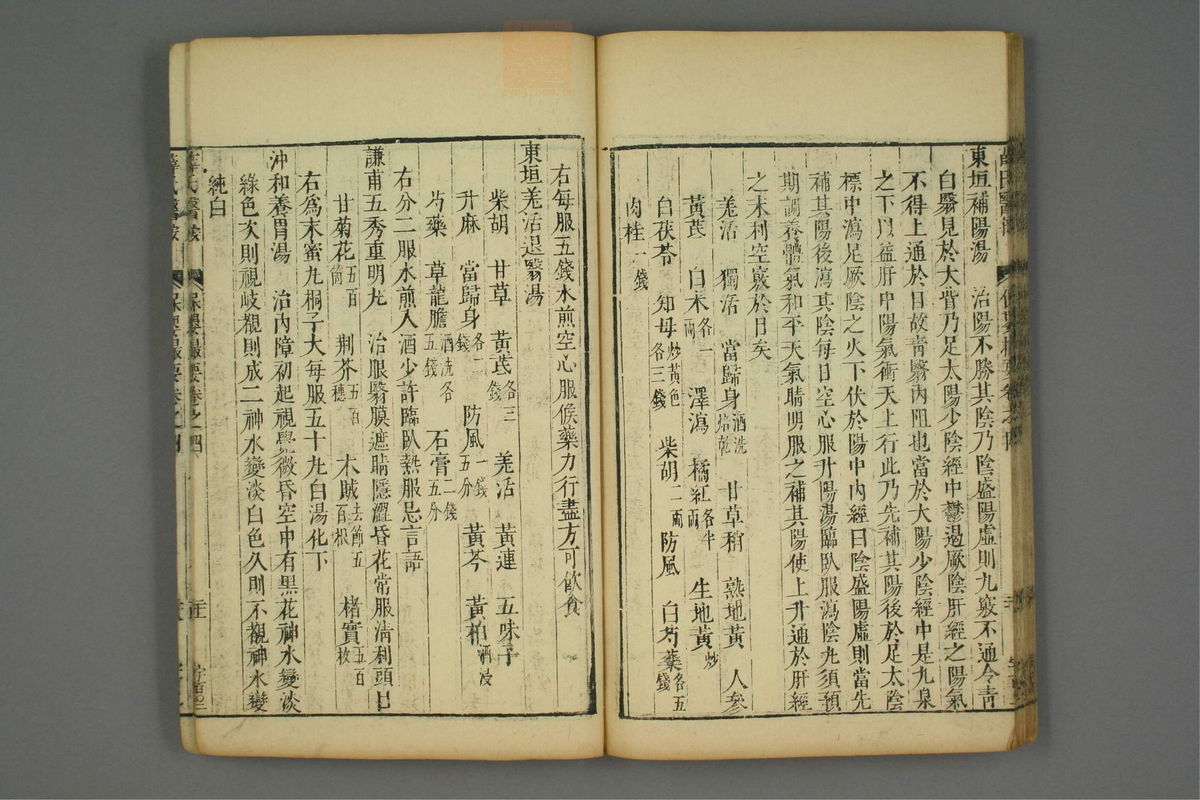 東垣補陽湯 治陽不勝其陰乃陰盛陽虛則九竅不通令靑
白瞖見於大眥乃足太陽少陰經中鬱遏厥陰肝經之陽氣
不得上通於目故靑瞖內阻也當於大陽少陰經中是九泉
之下以益肝中陽氣衝天上行此乃先補其陽後於足太陰
標中瀉足厥陰之火下伏於陽中內經曰陰盛陽虛則當先
補其陽後瀉其陰每日空心服升陽湯臨臥服瀉陰丸須預
期調養體氣和平天氣晴明服之補其陽使上升通於肝經
之末利空竅於目矣
羌活 獨活 當歸身酒洗焙乾 甘草稍 熟地黃 人參
黃芪 白朮各一兩 澤瀉 橘紅各半兩 生地黃炒
白茯苓 知母炒黃色各三錢 柴胡二兩 防風 白芍藥各五錢
肉桂一錢
右每服五錢水煎空心服候藥力行盡方可飲食
東垣羌活退瞖湯
柴胡 甘草 黃芪各三錢 羌活 黃連 五味子
升麻 當歸身各二錢 防風一錢五分 黃芩 黃柏酒浸
芍藥 草龍膽酒洗各五錢 石膏二錢五分
右分二服水煎入酒少許臨臥熱服忌言語
謙甫五秀重明丸 治眼瞖膜遮睛隱澀昏花常服淸利頭目
甘菊花五百箇 荆芥五百穗 木賊去節五百根 楮實五百枚
右爲末蜜丸桐子大每服五十丸白湯化下
沖和養胃湯 治內障初起視覺微昏空中有黑花神水變淡
綠色次則視岐覩則成二神水變淡白色久則不覩神水變
純白